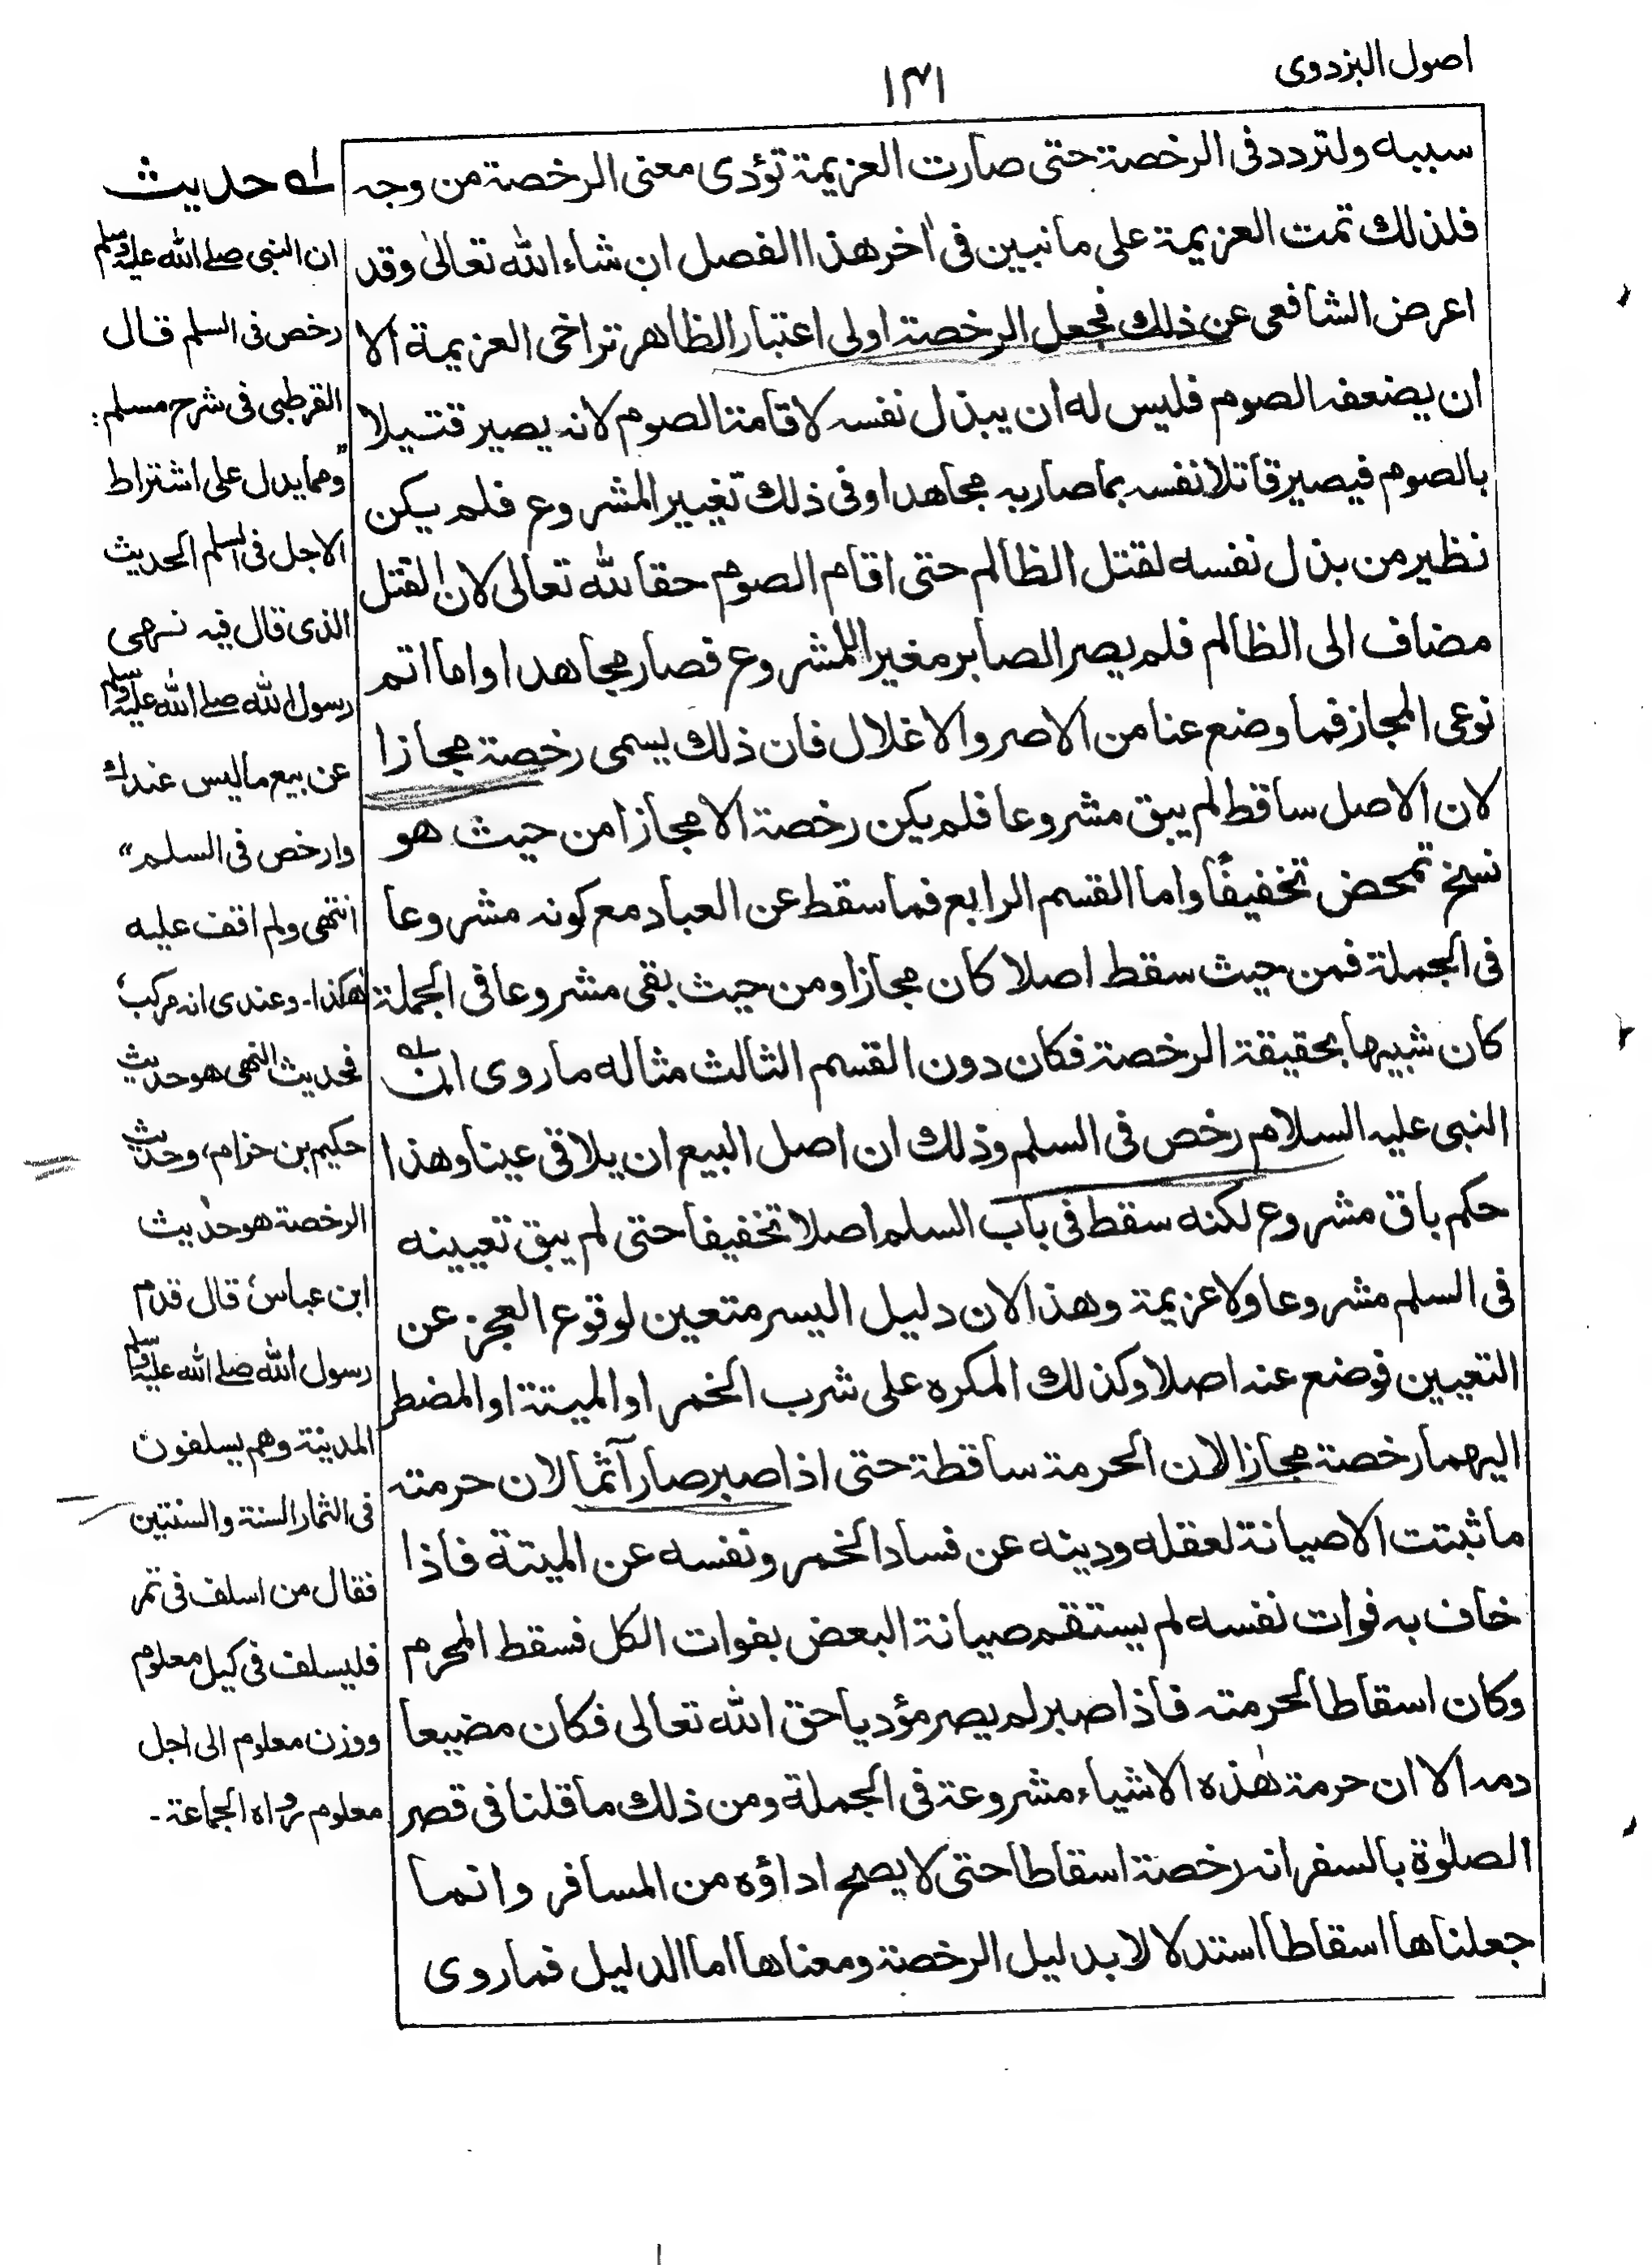 اصول البزدوى
١٤١
سببه ولتردد فى الرخصة حتى صارت العزيمة تؤدى معنى الرخصة من وجه
فلذلك تمت العزيمة على ما نبين فى اٰخر هذا الفصل ان شاء الله تعالىٰ وقد
اعرض الشافعى عن ذلك فجعل الرخصة اولى اعتبار الظاهر تراخى العزيمة الا
ان يضعفه الصوم فليس له ان يبذل نفسه لاقامة الصوم لانه يصير قتيلا
بالصوم فيصير قاتلا نفسه بما صار به مجاهدا وفى ذلك تغيير المشروع فلم يكن
نظير من بذل نفسه لقتل الظالم حتى اقام الصوم حقا لله تعالى لان القتل
مضاف الى الظالم فلم يصر الصابر مغيرا للمشروع فصار مجاهدا واما اتم
نوعى المجاز فما وضع عنا من الاصر والاغلال فان ذلك يسمى رخصة مجازا
لان الاصل ساقط لم يبق مشروعا فلم يكن رخصة الا مجازا من حيث هو
نسخ تمحض تخفيفًا واما القسم الرابع فما سقط عن العباد مع كونه مشروعا
فى الجملة فمن حيث سقط اصلا كان مجازا ومن حيث بقى مشروعا فى الجملة
كان شبيها بحقيقة الرخصة فكان دون القسم الثالث مثاله ما روى ان
النبى عليه السلام رخص فى السلم وذلك ان اصل البيع ان يلاقى عينا وهذا
حكم باق مشروع لكنه سقط فى باب السلم اصلا تخفيفا حتى لم يبق تعيينه
فى السلم مشروعا ولا عزيمة وهذا لان دليل اليسر متعين لوقوع العجز عن
التعيين فوضع عنه اصلا وكذلك المكره على شرب الخمر او الميتة او المضطر
اليهما رخصة مجازا لان الحرمة ساقطة حتى اذا صبر صار آثما لان حرمته
ما ثبتت الا صيانة لعقله ودينه عن فساد الخمر ونفسه عن الميتة فاذا
خاف به فوات نفسه لم يستقم صيانة البعض بفوات الكل فسقط المحرم
وكان اسقاطا لحرمته فاذا صبر لم يصر مؤديا حق الله تعالى فكان مضيعا
دمه الا ان حرمة هٰذه الاشياء مشروعة فى الجملة ومن ذلك ما قلنا فى قصر
الصلوٰة بالسفر انه رخصة اسقاطا حتى لا يصح اداؤه من المسافر وانما
جعلناها اسقاطا استدلالا بدليل الرخصة ومعناها اما الدليل فما روى
لـه حديث
ان النبى صلى الله عليه وسلم
رخص فى السلم قال
القرطبى فى شرح مسلم:
"ومما يدل على اشتراط
الاجل فى السلم الحديث
الذى قال فيه نهى
رسول الله صلى الله عليه وسلم
عن بيع ما ليس عندك
وارخص فى السلم"
انتهى ولم اقف عليه
هكذا۔ وعندى انه مركب
فحديث النهى هو حديث
حكيم بن حزام، وحديث
الرخصة هو حديث
ابن عباسؓ قال قدم
رسول الله صلى الله عليه وسلم
المدينة وهم يسلفون
فى الثمار السنة والسنتين
فقال من اسلف فى تمر
فليسلف فى كيل معلوم
ووزن معلوم الى اجل
معلوم رواه الجماعة۔